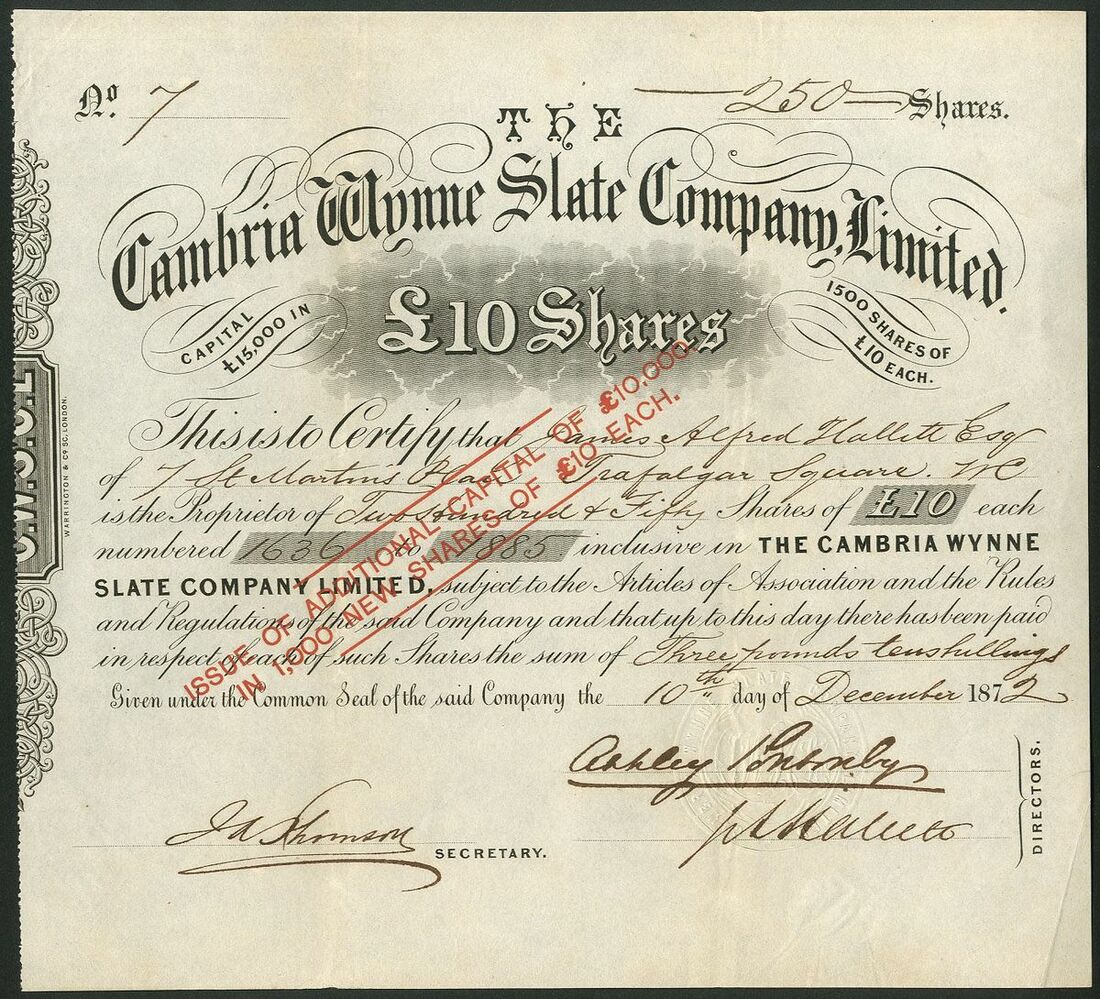 No. 7
250 Shares.
THE
Cambria Wynne Slate Company, Limited.
CAPITAL
£15,000 IN
£10 Shares
1500 SHARES OF
£10 EACH.
This is to Certify that James Alfred Hallett Esq
of 7 St Martin's Place Trafalgar Square. WC
is the Proprietor of Two Hundred & Fifty Shares of £10 each
numbered 1636 to 1885 inclusive in THE CAMBRIA WYNNE
SLATE COMPANY LIMITED, subject to the Articles of Association and the Rules
and Regulations of the said Company and that up to this day there has been paid
in respect of each of such Shares the sum of Three pounds ten shillings
Given under the Common Seal of the said Company the 10th day of December 1872
ISSUE OF ADDITIONAL CAPITAL OF £10,000.
IN 1,000 NEW SHARES OF £10 EACH.
Ashley Ponsonby
J A Hallett
DIRECTORS.
J A Thomson
SECRETARY.
C.W.S.C.L
WARRINGTON & Co SC. LONDON.